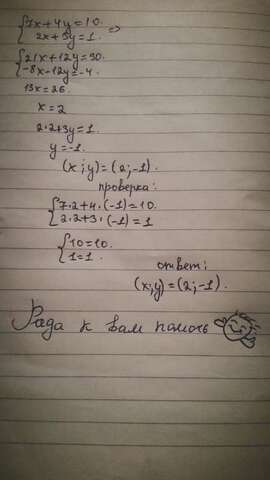 {7x+4y=10. =>
{2x+3y=1.
{21x+12y=30.
{-8x-12y=-4.
13x=26.
x=2
2·2+3y=1.
y=-1.
(x;y)=(2;-1).
проверка:
{7·2+4·(-1)=10.
{2·2+3·(-1)=1
{10=10.
{1=1.
ответ:
(x;y)=(2;-1).
Рада к вам помочь